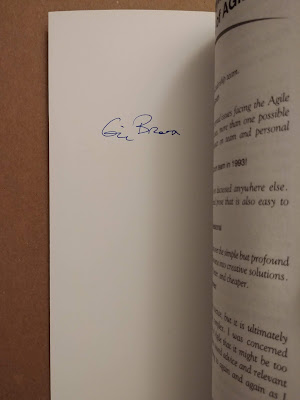 Gil Broza
of AGI
team.
issues facing the Agile
more than one possible
team and personal
team in 1993)
discussed anywhere else.
that is also easy to
the simple but profound
into creative solutions.
and cheaper.
but it is ultimately
I was concerned
that it might be too
advice and relevant
again and again as I